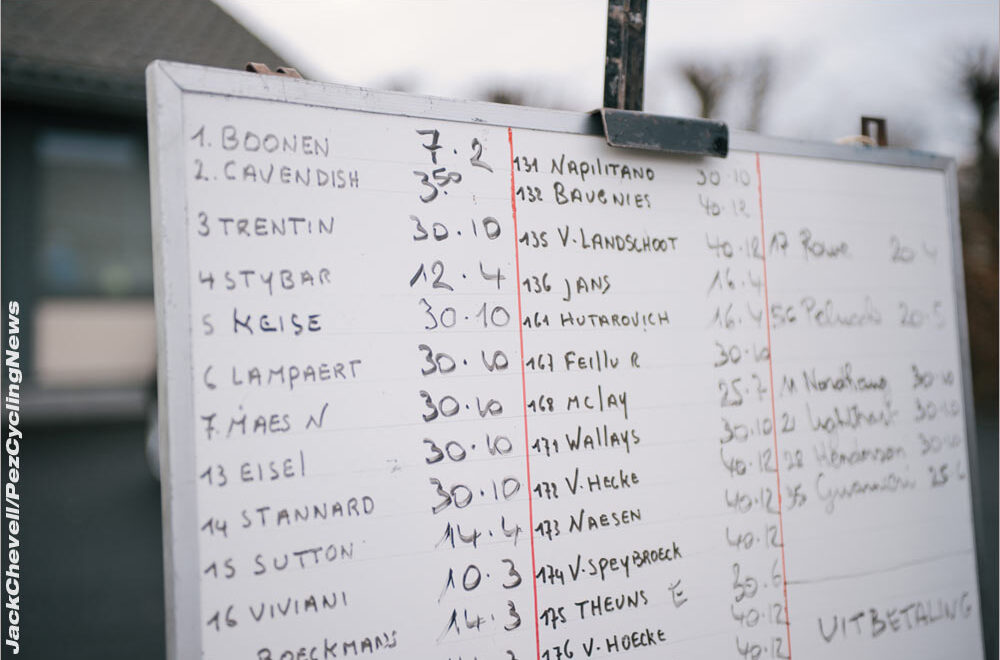 1. BOONEN 7.2
2. CAVENDISH 3.50
3 TRENTIN 30.10
4 STYBAR 12.4
5 KEISE 30.10
6 LAMPAERT 30.10
7. MAES N 30.10
13 EISEl 30.10
14 STANNARD 30.10
15 SUTTON 14.4
16 VIVIANI 10.3
BOECKMANS 14.3
131 NAPILITANO 30.10
132 BAUGNIES 40.12
135 V.LANDSCHOOT 40.12
136 JANS 16.4
161 HUTAROVICH 16.4
167 FEILLU R 30.10
168 MClAY 25.7
171 WAllAYS 30.10
172 V.HECKE 40.12
173 NAESEN 40.12
174 V.SPEYBROECK 40.12
175 THEUNS E 30.6
176 V.HOECKE 40.12
40.12
17 Rowe 20.4
56 Pelucchi 20.5
11 Nordhaug 30.10
21 30.10
28 Henderson 30.10
35 25.6
UITBETALING
JackChevell/PezCyclingNews